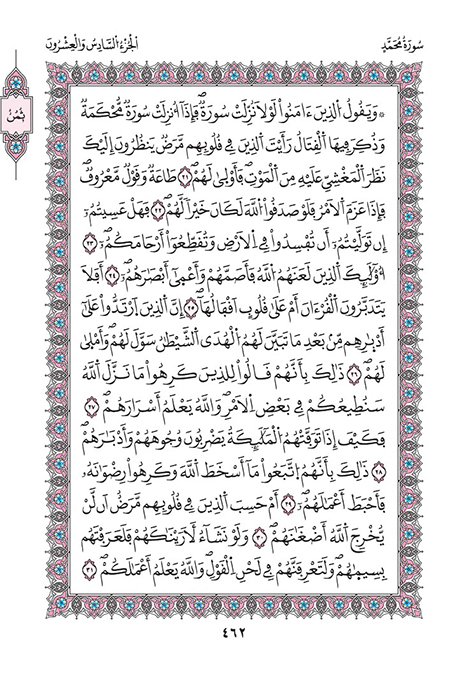 سُورَةُ مُحَمَّدٍ
اَلْجُزْءُ السَّادِسُ وَالْعِشْرُونَ
ثُمُنٌ
۞ وَيَقُولُ اُلذِينَ ءَامَنُواْ لَوْلَا نُزِّلَتْ سُورَةٞ فَإِذَآ أُنزِلَتْ سُورَةٞ مُّحْكَمَةٞ
وَذُكِرَ فِيهَا اَلْقِتَالُ رَأَيْتَ اَلذِينَ فِے قُلُوبِهِم مَّرَضٞ يَنظُرُونَ إِلَيْكَ
نَظَرَ اَلْمَغْشِيِّ عَلَيْهِ مِنَ اَلْمَوْتِ فَأَوْل۪ىٰ لَهُمْ ٢١ طَاعَةٞ وَقَوْلٞ مَّعْرُوفٞ
فَإِذَا عَزَمَ اَلَامْرُ فَلَوْ صَدَقُواْ اُللَّهَ لَكَانَ خَيْراٗ لَّهُمْ ٢٢ فَهَلْ عَسِيتُمُۥٓ
إِن تَوَلَّيْتُمُۥٓ أَن تُفْسِدُواْ فِے اِلَارْضِ وَتُقَطِّعُوٓاْ أَرْحَامَكُمْ ٢٣
أُوْلَٰٓئِكَ اَلذِينَ لَعَنَهُمُ اُللَّهُ فَأَصَمَّهُمْ وَأَعْم۪ىٰٓ أَبْصَٰرَهُمْ ٢٤ أَفَلَا
يَتَدَبَّرُونَ اَلْقُرْءَانَ أَمْ عَلَىٰ قُلُوبٍ اَقْفَالُهَآ ٢٥ إِنَّ اَلذِينَ اَرْتَدُّواْ عَلَىٰٓ
أَدْبَٰرِهِم مِّنۢ بَعْدِ مَا تَبَيَّنَ لَهُمُ اُلْهُدَى اَلشَّيْطَٰنُ سَوَّلَ لَهُمْ وَأَمْل۪ىٰ
لَهُمْ ٢٦ ذَٰلِكَ بِأَنَّهُمْ قَالُواْ لِلذِينَ كَرِهُواْ مَا نَزَّلَ اَللَّهُ
سَنُطِيعُكُمْ فِے بَعْضِ اِلَامْرِ وَاللَّهُ يَعْلَمُ أَسْرَارَهُمْ ٢٧
فَكَيْفَ إِذَا تَوَفَّتْهُمُ اُلْمَلَٰٓئِكَةُ يَضْرِبُونَ وُجُوهَهُمْ وَأَدْبَٰرَهُمْ
٢٨ ذَٰلِكَ بِأَنَّهُمُ اُتَّبَعُواْ مَآ أَسْخَطَ اَللَّهَ وَكَرِهُواْ رِضْوَٰنَهُۥ
فَأَحْبَطَ أَعْمَٰلَهُمْ ٢٩ أَمْ حَسِبَ اَلذِينَ فِے قُلُوبِهِم مَّرَضٌ اَن لَّنْ
يُّخْرِجَ اَللَّهُ أَضْغَٰنَهُمْ ٣٠ وَلَوْ نَشَآءُ لَأَرَيْنَٰكَهُمْ فَلَعَرَفْتَهُم
بِسِيم۪ىٰهُمْ وَلَتَعْرِفَنَّهُمْ فِے لَحْنِ اِلْقَوْلِ وَاللَّهُ يَعْلَمُ أَعْمَٰلَكُمْ ٣١
٤٦٢